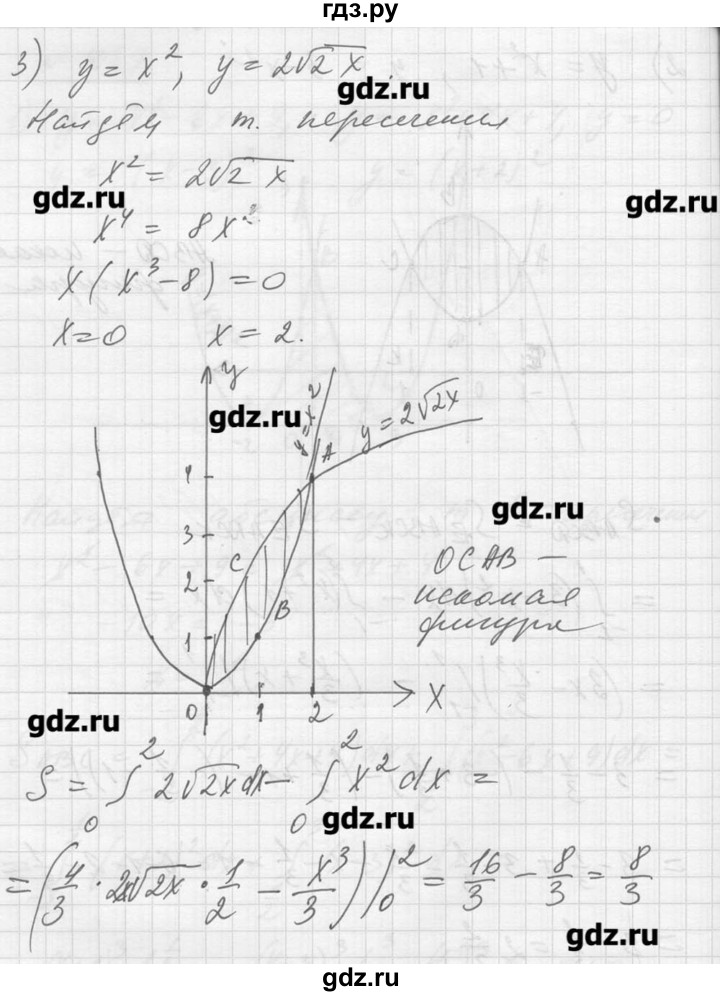 гдз.ру
3) y = x², y = 2√2x
gdz.ru
Найдём т. пересечения
x² = 2√2x
gdz.ru
gdz.ru
x⁴ = 8x
x(x³ − 8) = 0
x = 0 x = 2.
y
gdz.ru
y = x²
y = 2√2x
A
4
3
gdz.ru
C
2
OCAB —
искомая
фигура
B
1
0 1 2 X
gdz.ru
S = ∫₀² 2√2x dx − ∫₀² x² dx =
gdz.ru
= (4/3 · 2x√2x · 1/2 − x³/3) |₀² = 16/3 − 8/3 = 8/3
gdz.ru
gdz.ru